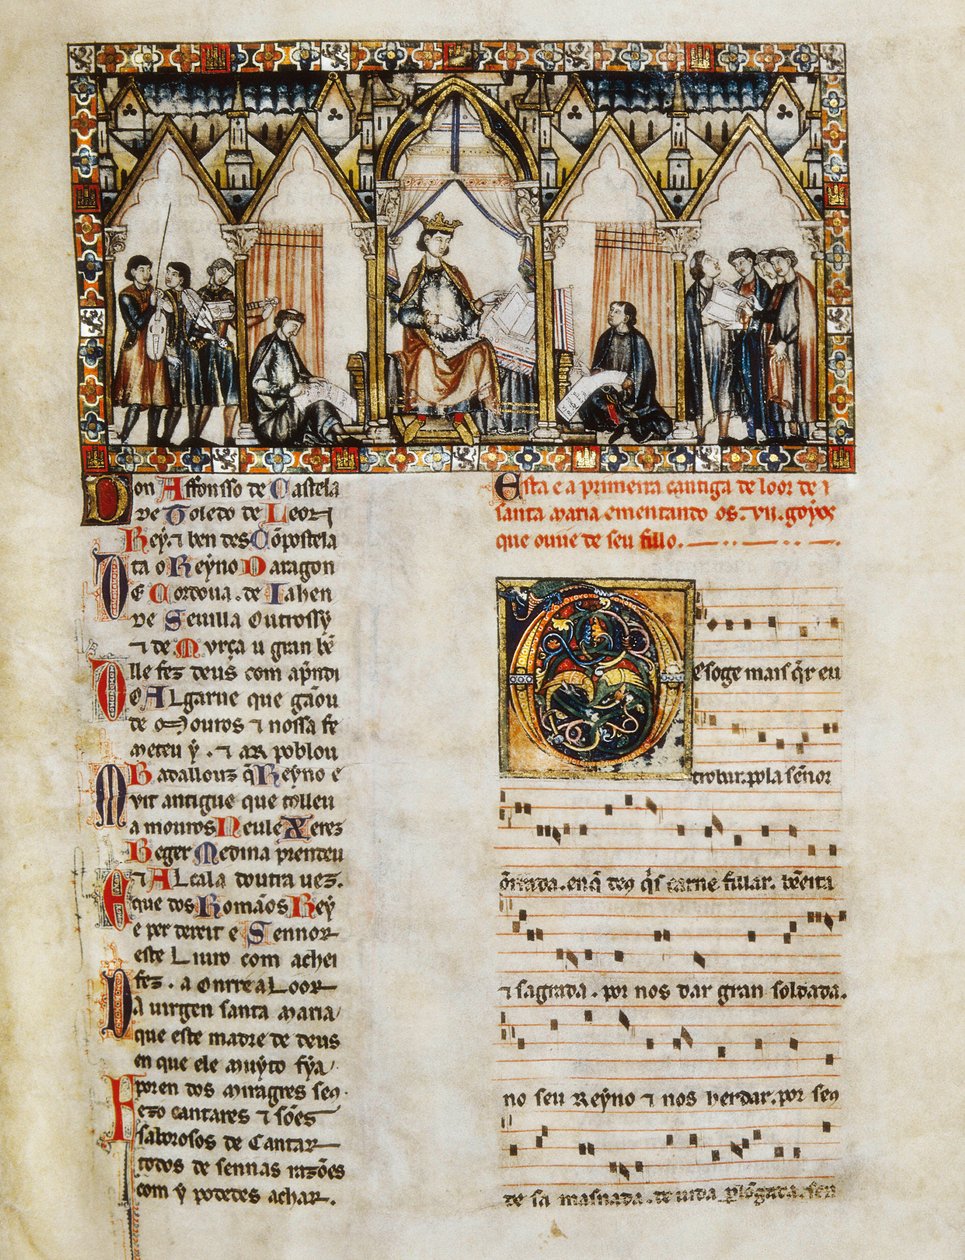 Don Affonsso de Castela
De Toledo de Leon
Rey ⁊ ben des Cõpostela
Ta o Reyno Daragon
De Cordova. de Iahen
De Sevilla outrossy
⁊ de Murça u gran bẽ
lle fez deus com aprẽdi
Do Algarve que gãou
de Mouros ⁊ nossa fe
meteu y. ⁊ ar poblou
Badallouz q̃ Reyno e
Muit antigue que tolleu
a mouros Neul e Xerez
Beger Medina prendeu
⁊ Alcala doutra vez.
E que dos Romãos Rey
e per dereit e Sennor
este Livro com achei
fez. a onrr e a Loor
Da virgen santa Maria
que este madre de deus
en que ele muyto fýa
Poren dos miragres seꝯ
Fezo cantares ⁊ sões
saborosos de Cantar
todos de sennas razões
com y podedes achar.
Esta e a primeira cantiga de loor de
santa maria ementando os. vii. goyos
que ouve de seu fillo.
Des oge mais q̃r eu
trobar. pola señor
õrrada. en q̃ deꝯ q̃s carne fillar. bẽeita
⁊ sagrada. por nos dar gran soldada.
no seu Reyno ⁊ nos herdar. por seꝯ
de sa masnada. de vida p̲lõgada. sen